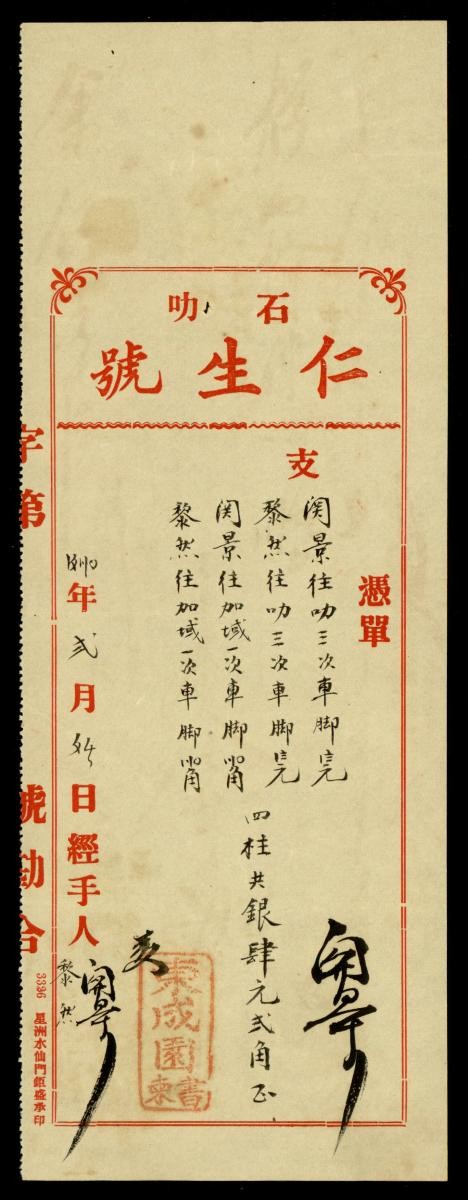 石叻
仁生號
憑單
支
関景往叻三次車脚
黎然往叻三次車脚
関景往加域一次車脚
黎然往加域一次車脚
四柱共銀肆元弍角正
関景
東成園
書柬
年弍月 日經手人
関景
黎然
字第 號勘合
3396 星洲水仙門鉅盛承印